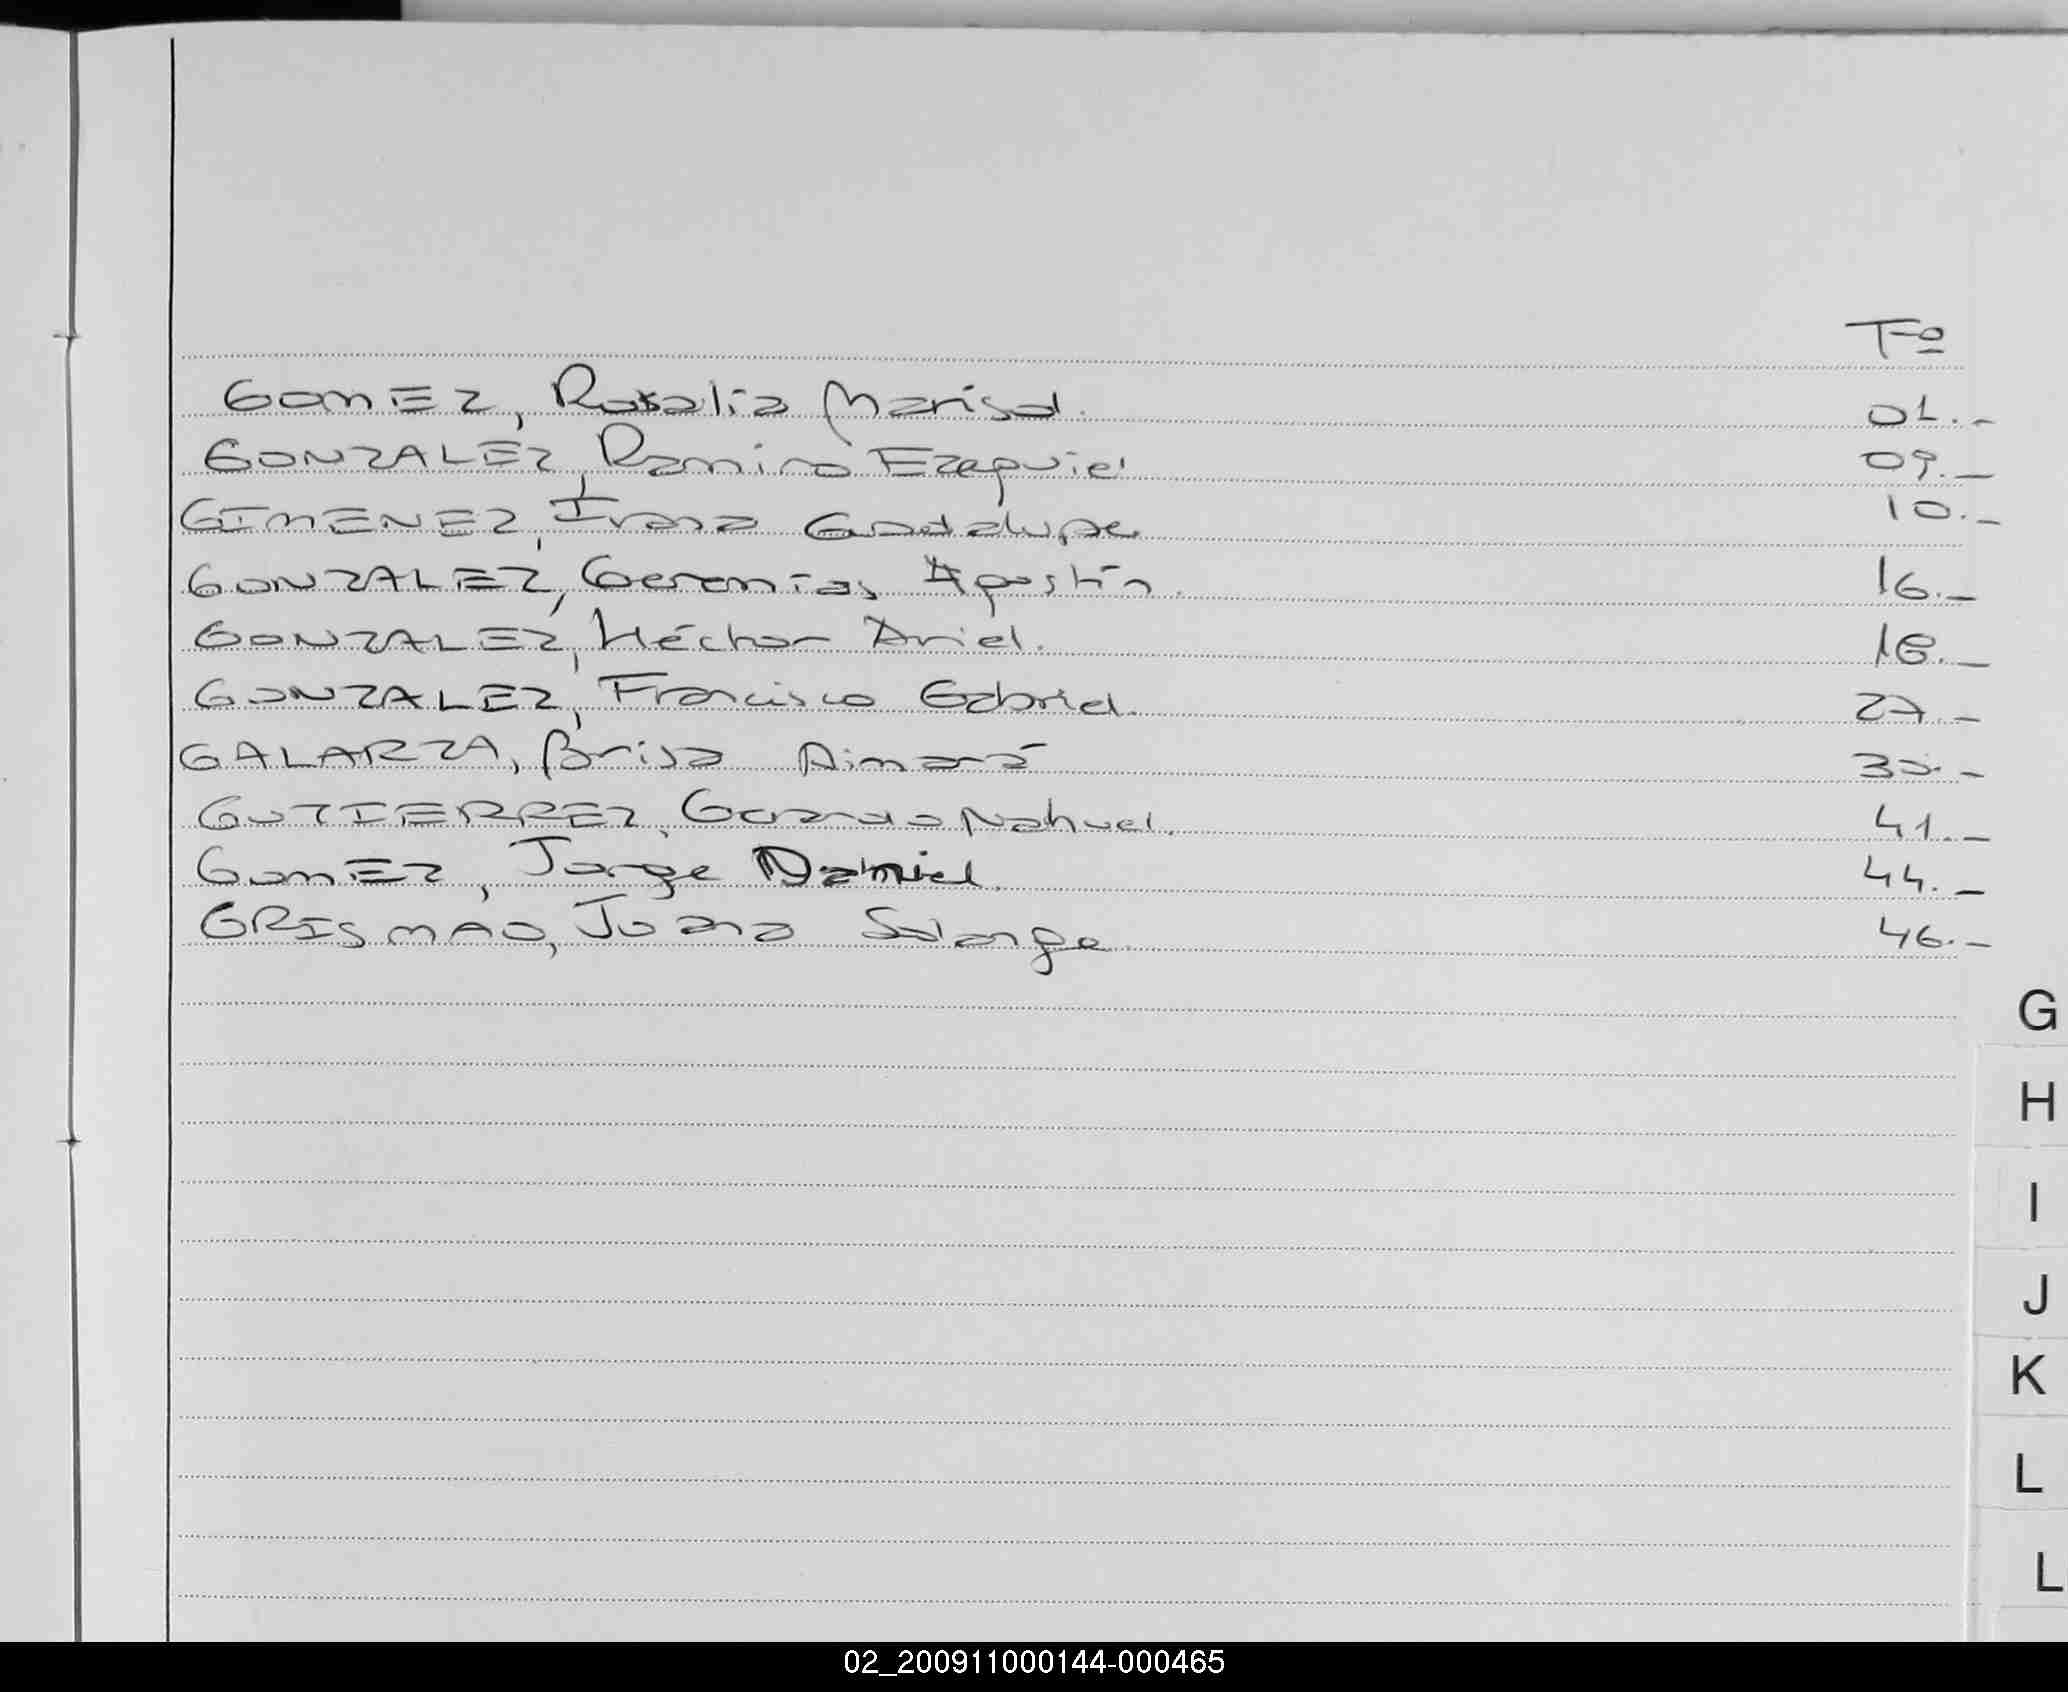 Fº
GOMEZ, Rosalia Marisol. 01.-
GONZALEZ, Ramiro Ezequiel 09.-
GIMENEZ, Ivana Guadalupe 10.-
GONZALEZ, Geremías Agustín. 16.-
GONZALEZ, Héctor Ariel. 18.-
GONZALEZ, Francisco Gabriel. 27.-
GALARZA, Brisa Aimará 30.-
GUTIERREZ, Gerardo Nahuel. 41.-
GOMEZ, Jorge Daniel. 44.-
GRISMAO, Juana Solange. 46.-
G
H
I
J
K
L
L
02_200911000144-000465